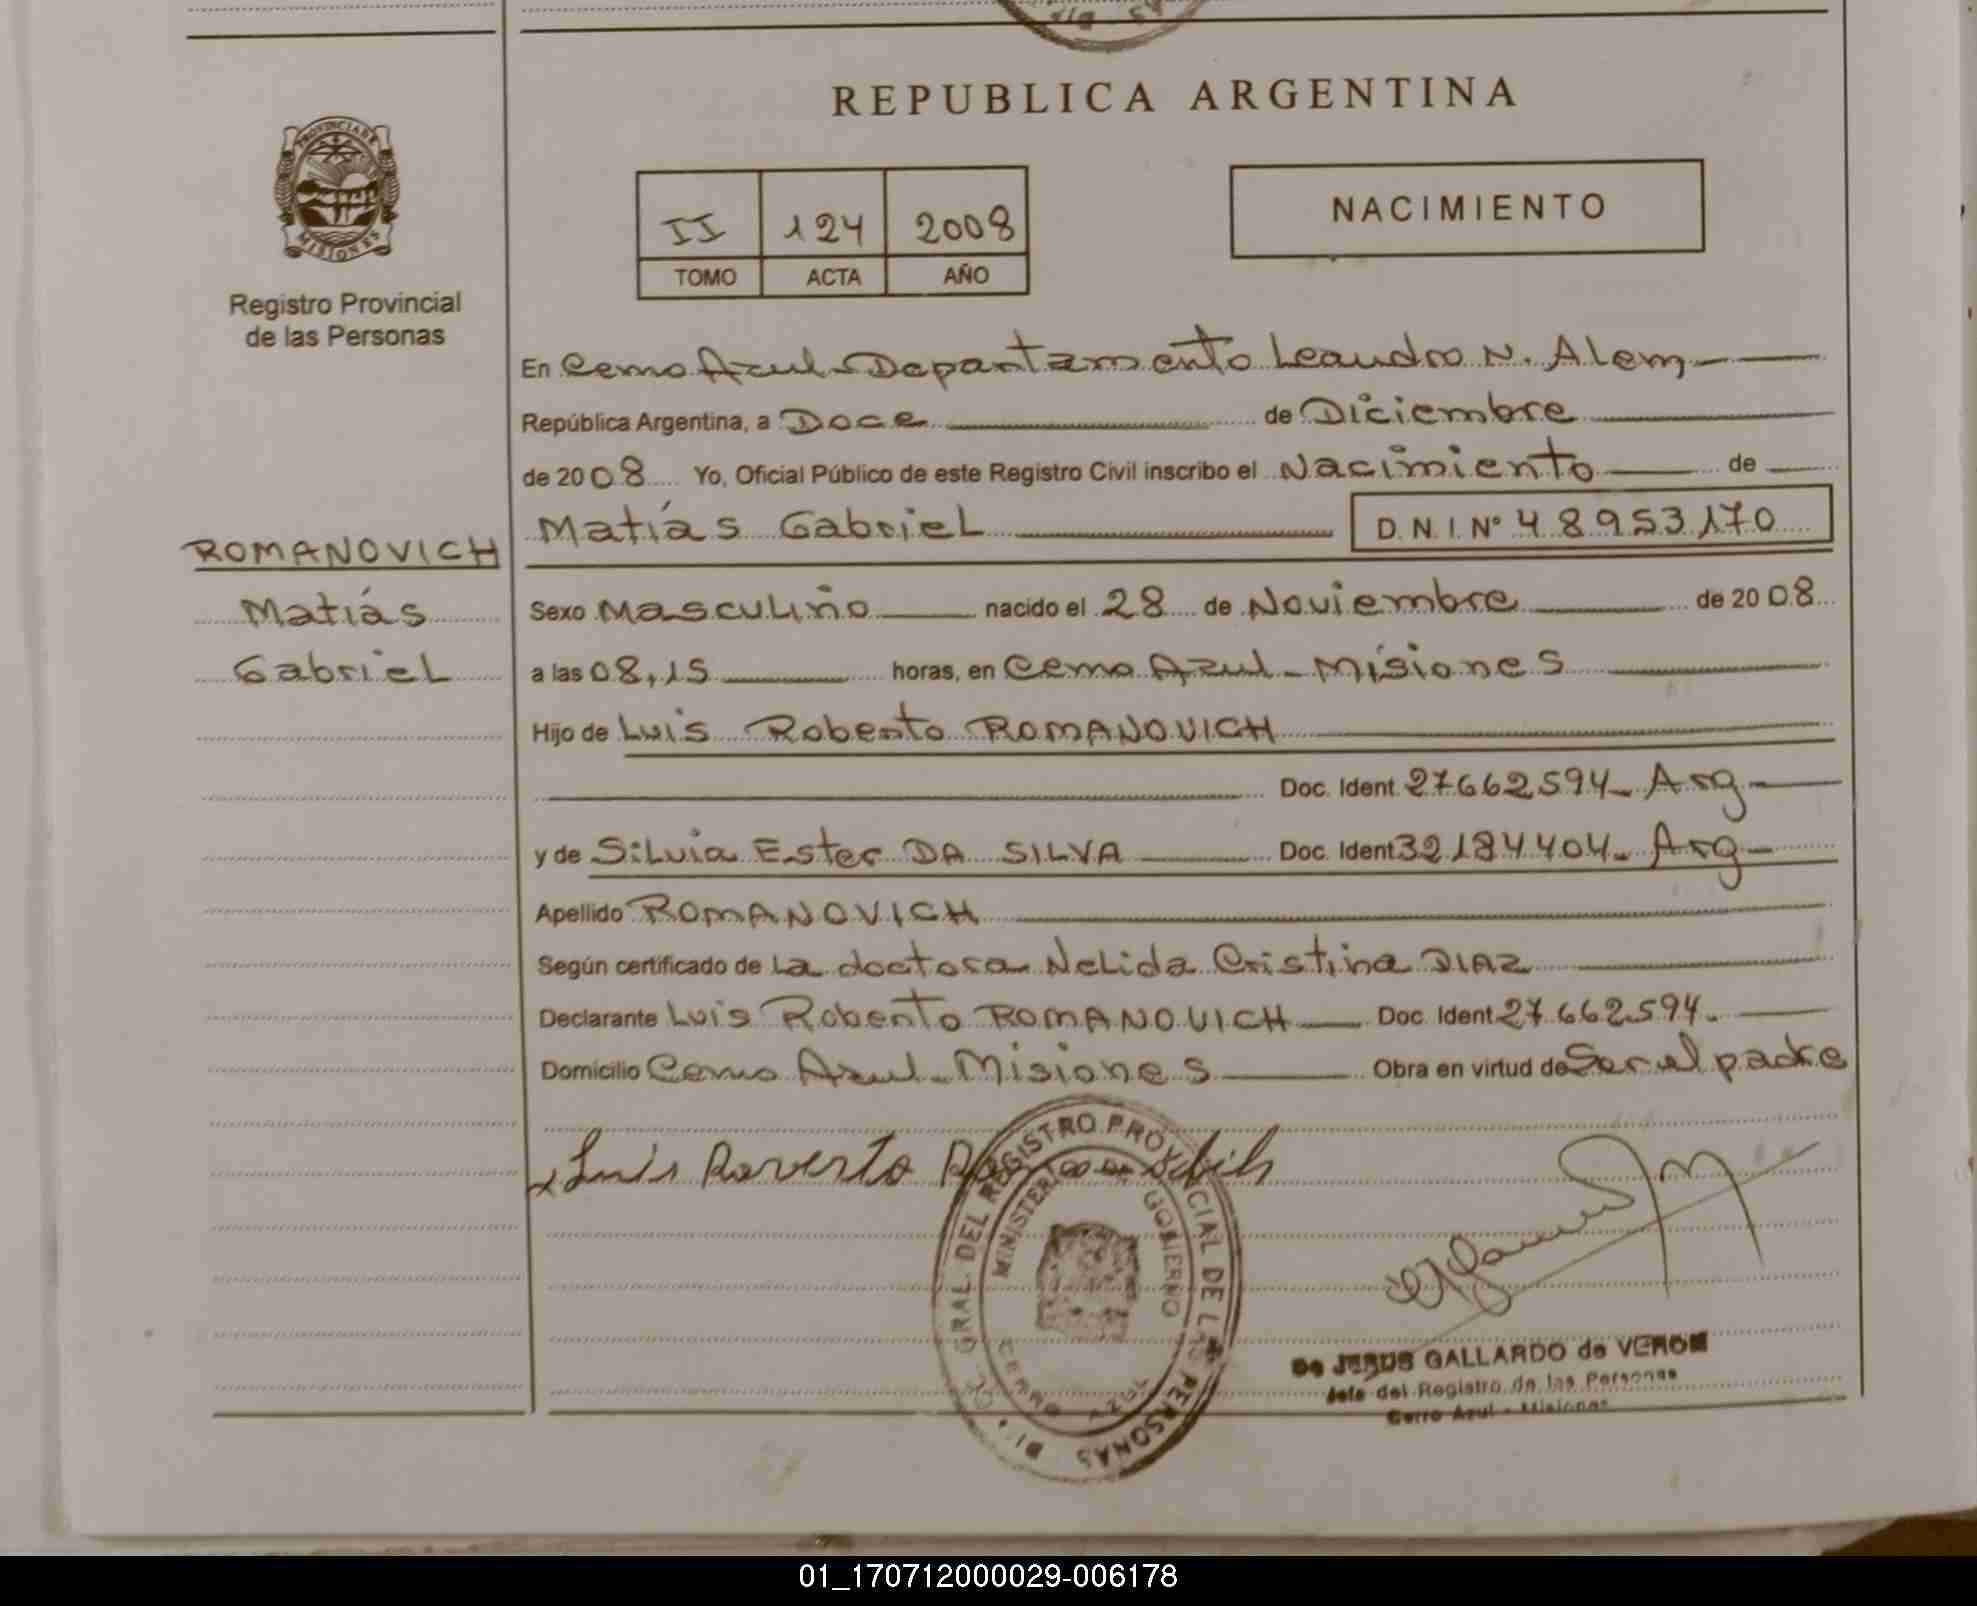 REPUBLICA ARGENTINA
PROVINCIA DE
MISIONES
Registro Provincial
de las Personas
II 124 2008
TOMO ACTA AÑO
NACIMIENTO
En Cerro Azul - Departamento Leandro N. Alem
República Argentina, a Doce de Diciembre
de 2008 Yo, Oficial Público de este Registro Civil inscribo el Nacimiento de
Matías Gabriel D.N.I. Nº 48953170
ROMANOVICH
Matías
Gabriel
Sexo Masculino nacido el 28 de Noviembre de 2008
a las 08,15 horas, en Cerro Azul - Misiones
Hijo de Luis Roberto ROMANOVICH
Doc. Ident 27662594 - Arg
y de Silvia Ester DA SILVA Doc. Ident 32184404 - Arg
Apellido ROMANOVICH
Según certificado de La doctora Nelida Cristina DIAZ
Declarante Luis Roberto ROMANOVICH Doc. Ident 27662594.
Domicilio Cerro Azul - Misiones Obra en virtud de Ser el padre
Luis Roverto
GRAL. DEL REGISTRO PROVINCIAL DE LAS PERSONAS
MINISTERIO DE GOBIERNO
CERRO AZUL
JESUS GALLARDO de VERON
Jefe del Registro de las Personas
Cerro Azul - Misiones
01_170712000029-006178